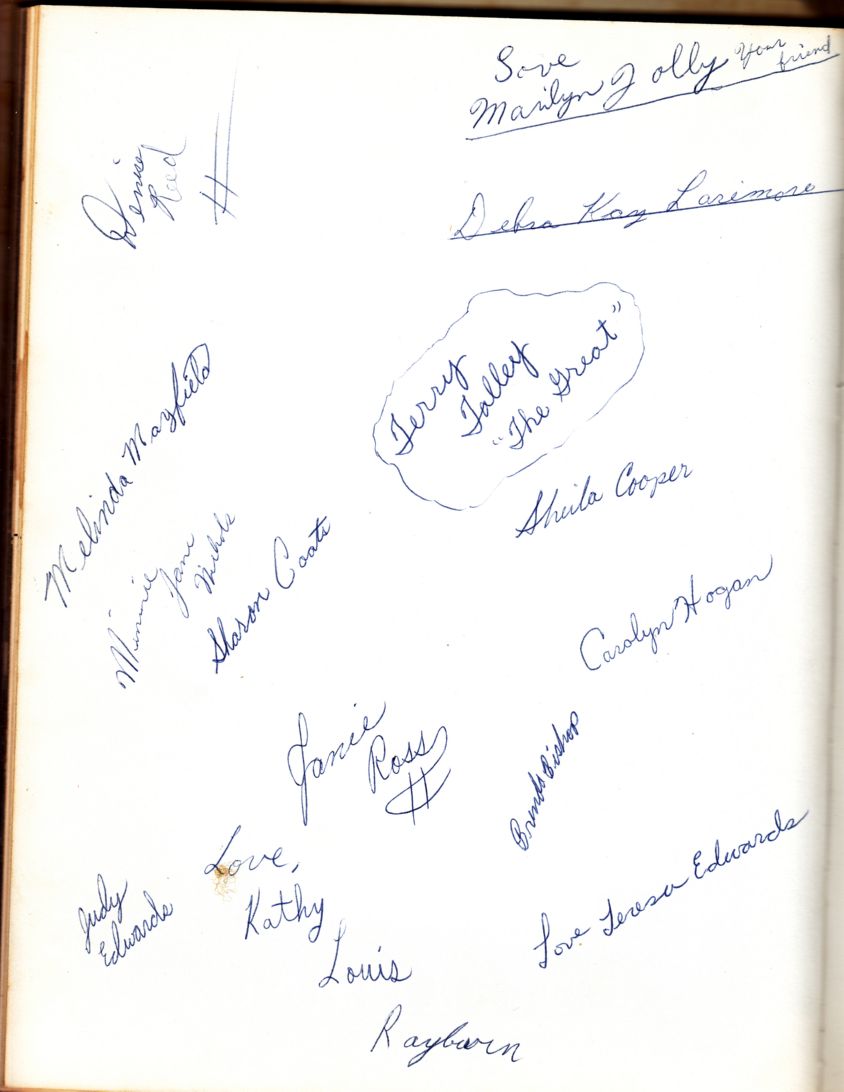 Love
Marilyn Jolly your friend
Denise
Reed
Debra Kay Larimore
Terry
Talley
"The Great"
Melinda Mayfield
Sheila Cooper
Minnie
Jane
Nichols
Sharon Coats
Carolyn Hogan
Janie
Ross
Brenda Bishop
Love,
Kathy
Louis
Rayburn
Judy
Edwards
Love Teresa Edwards